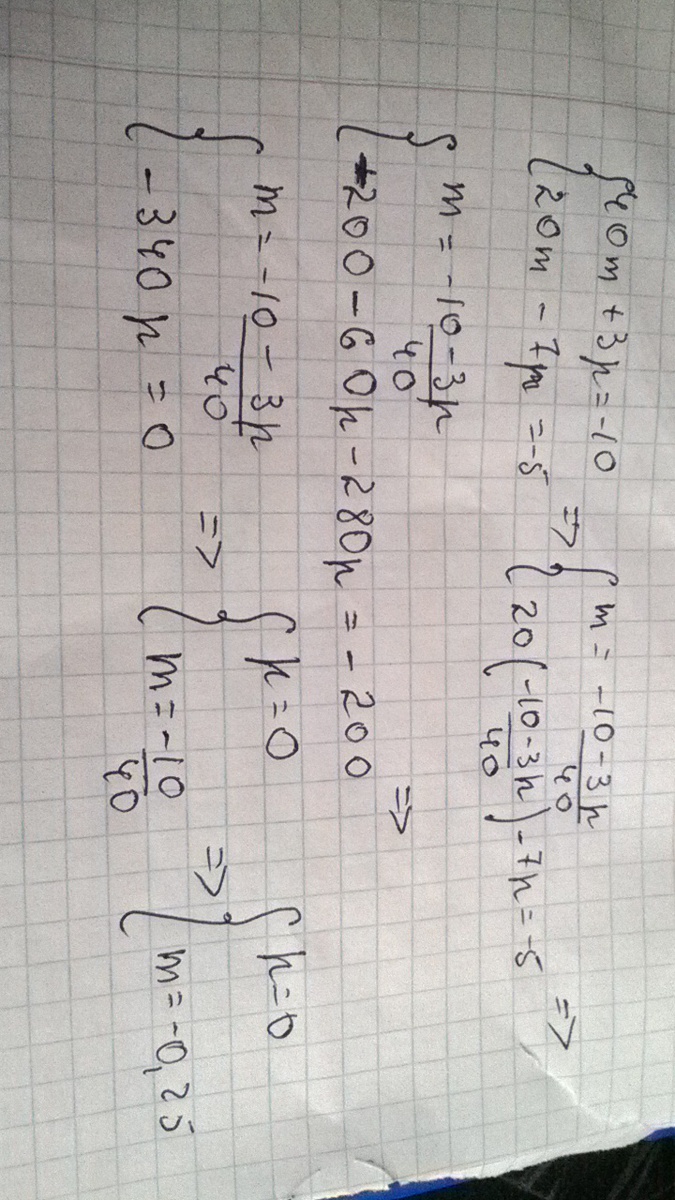 {40m + 3n = -10
{20m - 7n = -5 => {m = -10-3n/40
{20(-10-3n/40) - 7n = -5 =>
{m = -10-3n/40
{-200 - 60n - 280n = -200 =>
{m = -10-3n/40
{-340n = 0 => {n = 0
{m = -10/40 => {n = 0
{m = -0,25